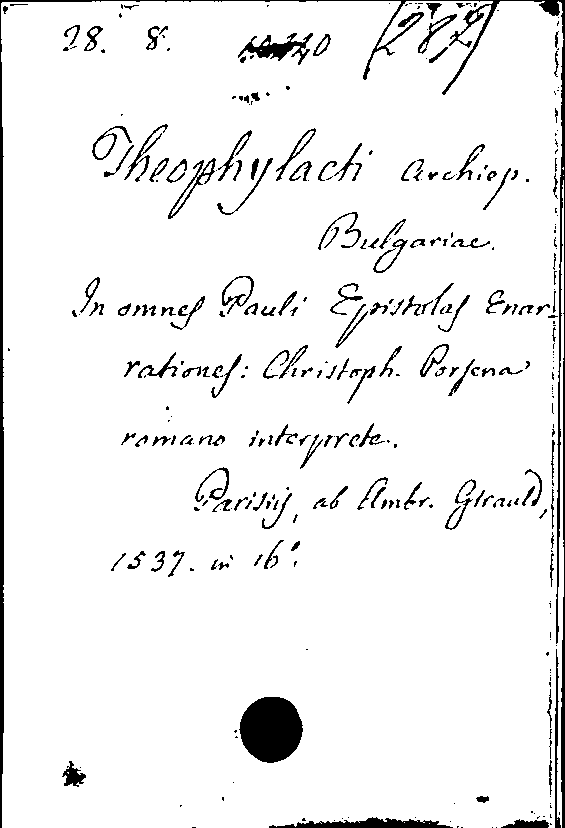 28. 8. (287)
Theophylacti Archiep.
Bulgariae.
In omnes Pauli Epistolas Enar-
rationes: Christoph. Porsena
romano interprete.
Parisiis, ab Ambr. Girauld,
1537. in 16°.